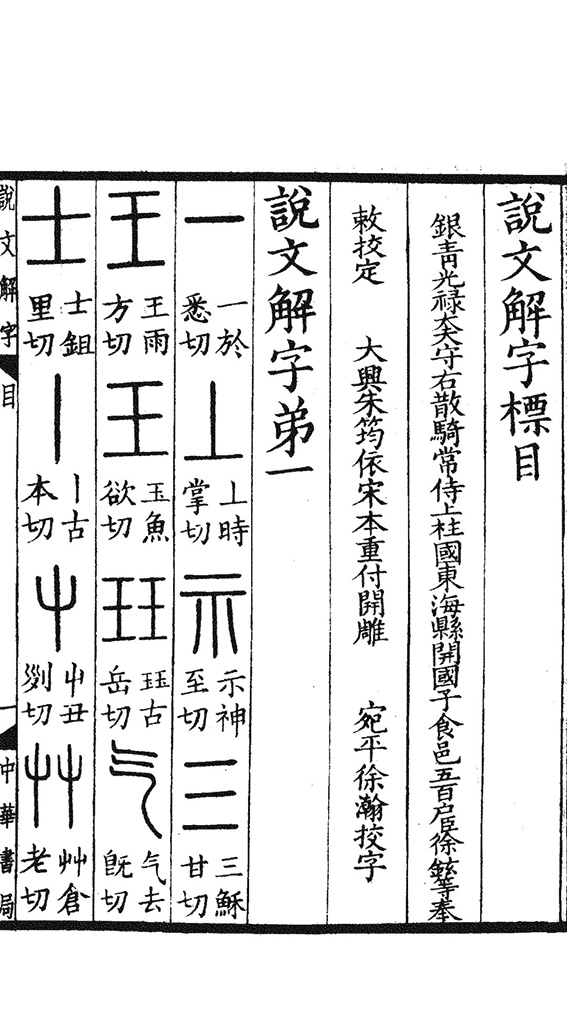 說文解字標目
銀青光祿大夫守右散騎常侍上柱國東海縣開國子食邑五百户臣徐鉉等奉
敕挍定　大興朱筠依宋本重付開雕　宛平徐瀚挍字
說文解字弟一
一 一於悉切 丄 丄時掌切 示 示神至切 三 三穌甘切
王 王雨方切 王 玉魚欲切 玨 玨古岳切 气 气去旣切
士 士鉏里切 丨 丨古本切 屮 屮丑列切 艸 艸倉老切
說文解字 目 一 中華書局